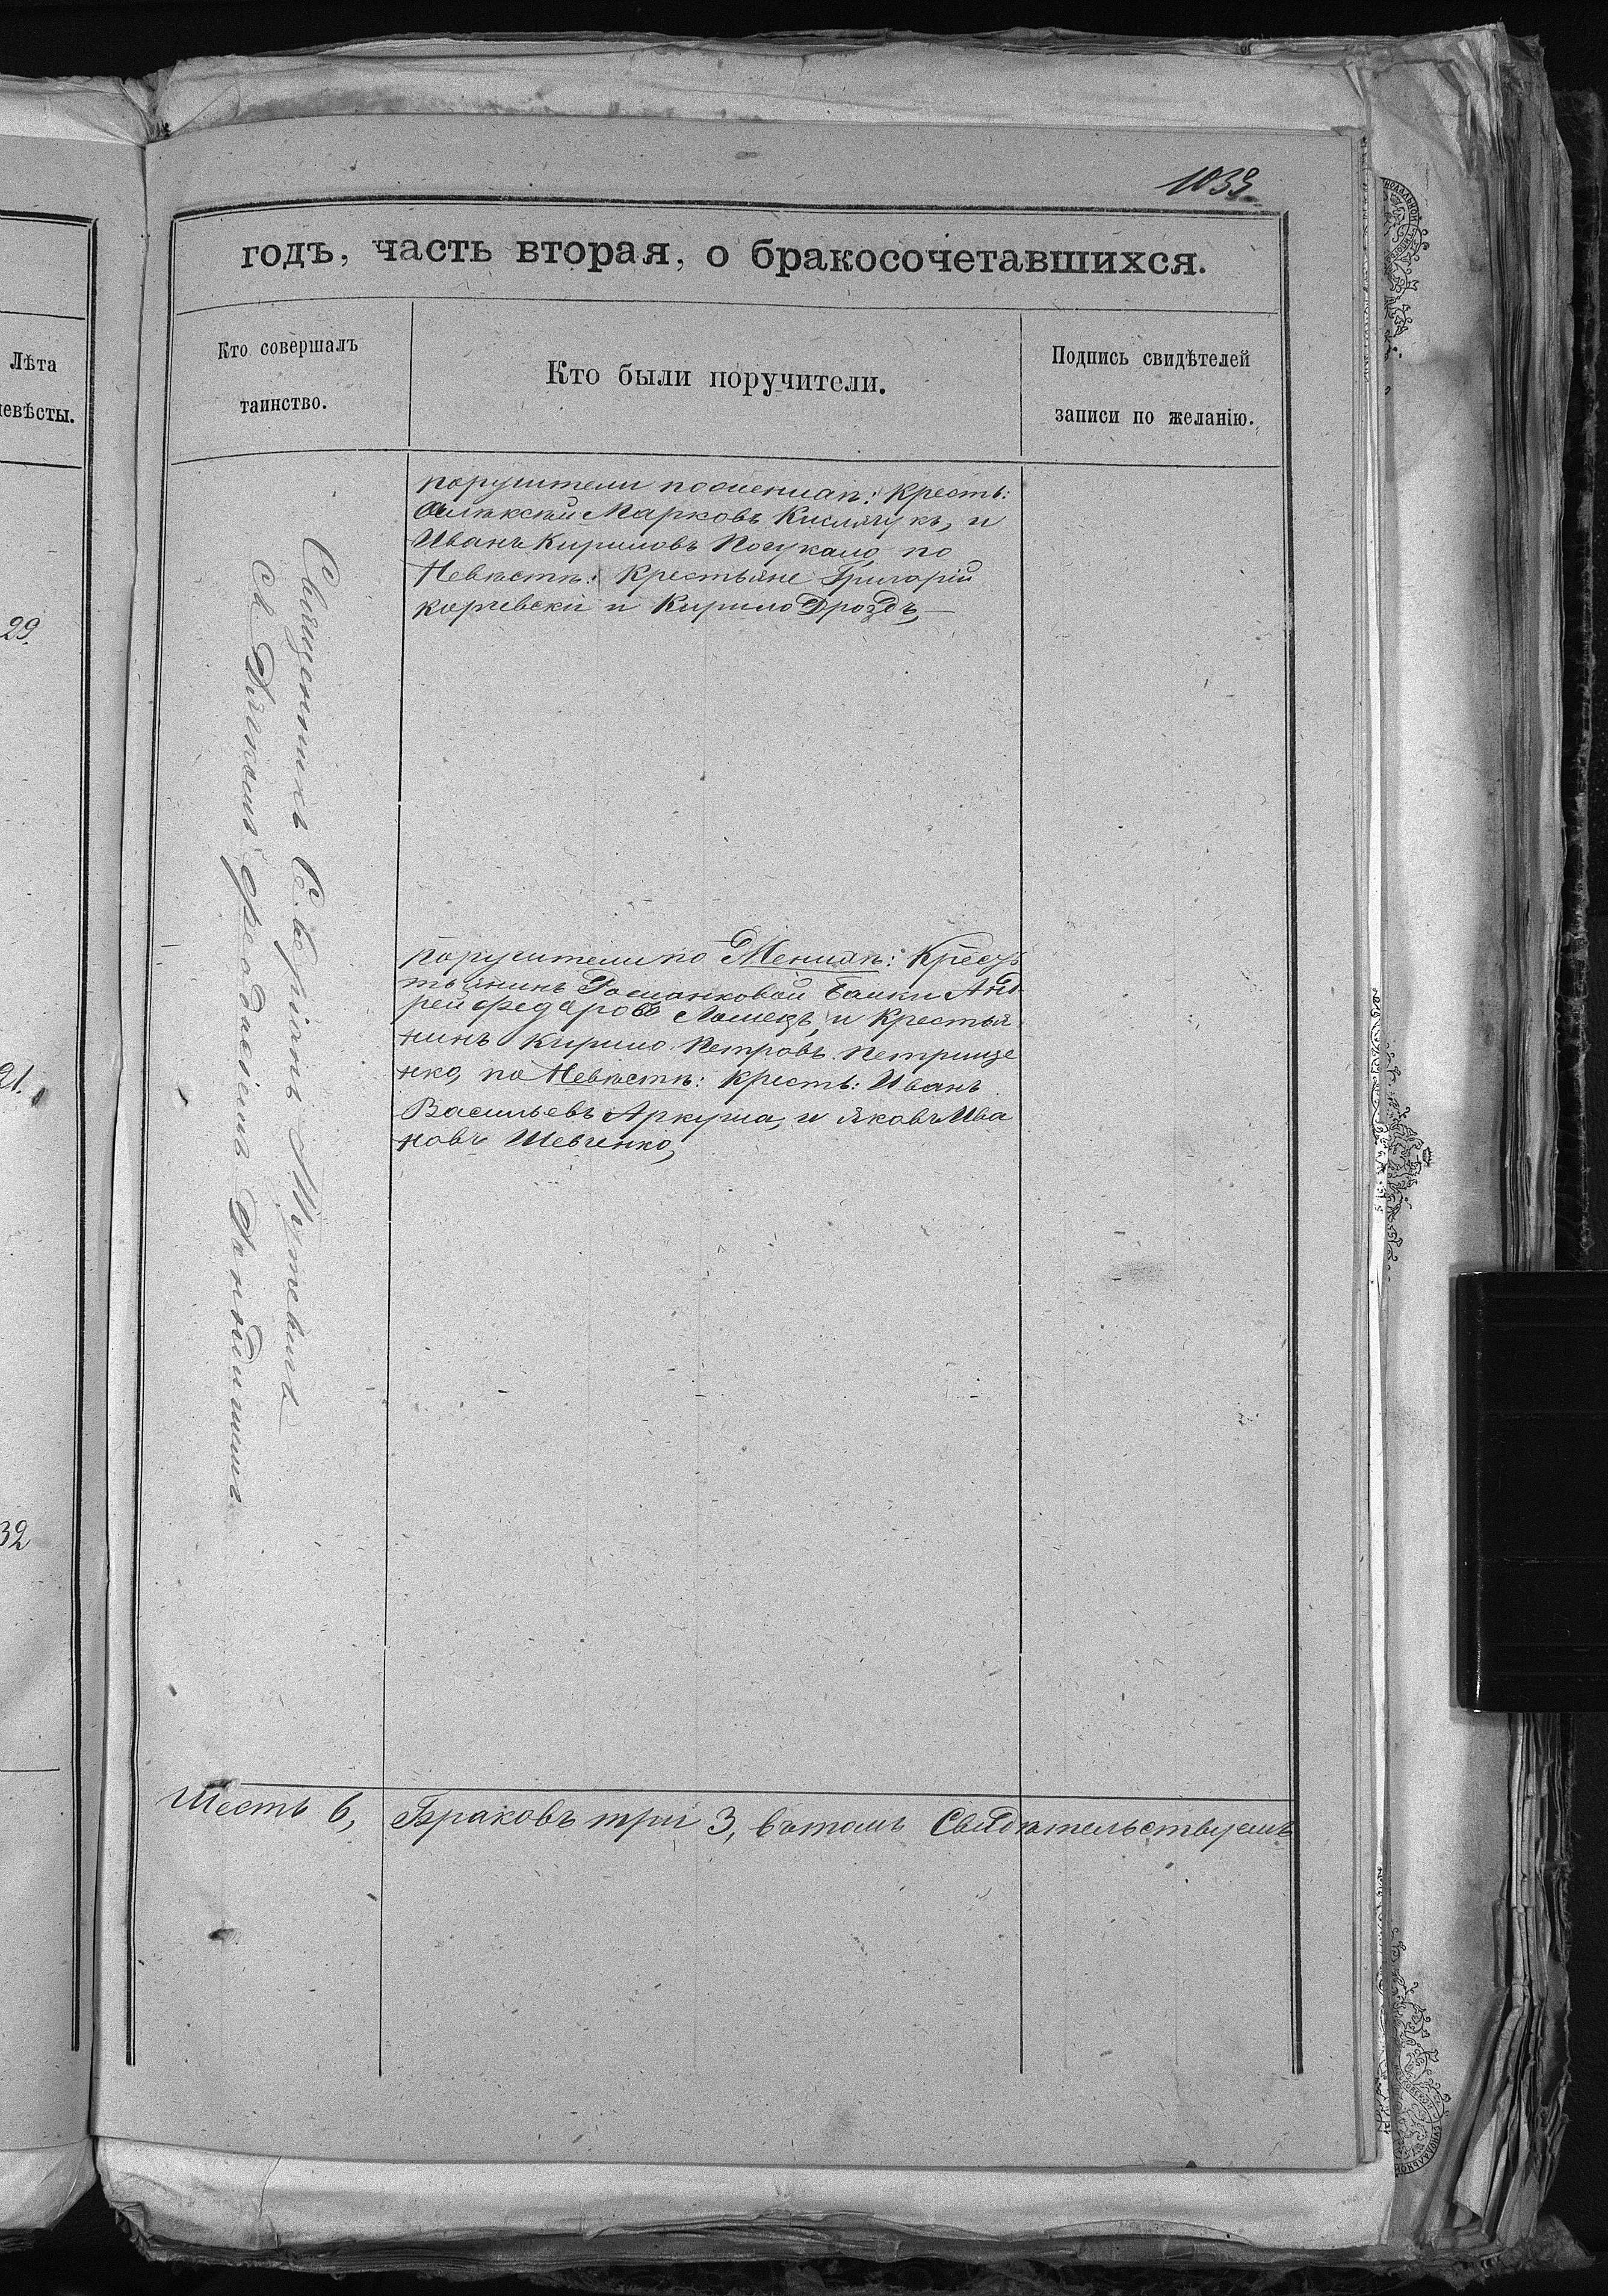 1039
годъ, часть вторая, о бракосочетавшихся.
Лѣта
невѣсты.
Кто совершалъ
таинство.
Кто были поручители.
Подпись свидѣтелей
записи по желанію.
29
21
32
Священникъ Севиріанъ Мутевичъ
съ Дячкомъ Феодосіемъ
поручители по женихѣ: Кресть:
Алѣксѣй Марковъ Кислячукъ, и
Иванъ Кириловъ Почукало, по
Невѣстѣ: Крестьяне Григорій
корчевскій и Кирило Дроздъ,—
поручители по Женихѣ: Крес
тьянинъ Романковой Балки Анд
рей Федоровъ и Крестья
нинъ Кирило Петровъ Петрище
нко, по Невѣстѣ: Кресть: Иванъ
Васильевъ Аркуша, и Яковъ Ива
новъ Шевченко,
Шесть 6, Браковъ три 3, вътомъ Свидѣтельствуемъ